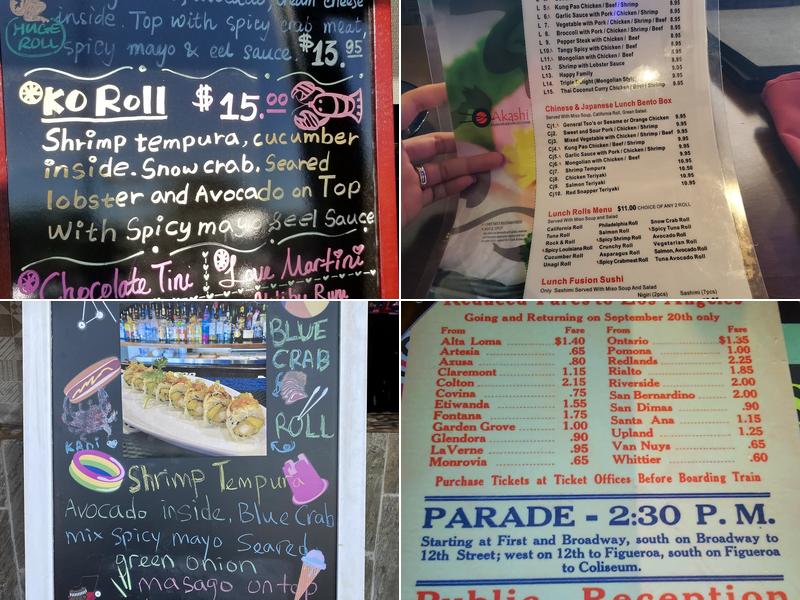 cream cheese
inside. Top with spicy crab meat,
spicy mayo & eel sauce. $13.95
HUGE
ROLL
KO ROLL $15.00
Shrimp tempura, cucumber
inside. Snow crab. Seared
lobster and Avocado on Top
with Spicy mayo & eel Sauce
Chocolate Tini
Love Martini
L 5. Kung Pao Chicken / Beef / Shrimp
L 6. Garlic Sauce with Pork / Chicken / Shrimp
L 7. Vegetable with Pork / Chicken / Shrimp / Beef
L 8. Broccoli with Pork / Chicken / Shrimp / Beef
L 9. Pepper Steak with Chicken / Beef
L10. Tangy Spicy with Chicken / Beef
L11. Mongolian with Chicken / Beef
L12. Shrimp with Lobster Sauce
L13. Happy Family
L14. Triple Delight (Mongolian Style)
L15. Thai Coconut Curry Chicken / Beef / Shrimp
Akashi
Chinese & Japanese Lunch Bento Box
Served With Miso Soup, California Roll, Green Salad
Cj1. General Tso's or Sesame or Orange Chicken 9.95
Cj2. Sweet and Sour Pork / Chicken / Shrimp 9.95
Cj3. Mixed Vegetable with Chicken / Beef / Shrimp 9.95
Cj4. Kung Pao Chicken / Beef / Shrimp 9.95
Cj5. Garlic Sauce with Pork / Chicken / Beef / Shrimp 9.95
Cj6. Mongolian with Chicken / Beef 9.95
Cj7. Shrimp Tempura 10.50
Cj8. Chicken Teriyaki 10.50
Cj9. Salmon Teriyaki 10.95
Cj10. Red Snapper Teriyaki 10.95
Lunch Rolls Menu $11.00 CHOICE OF ANY 2 ROLL
Served With Miso Soup and Salad
California Roll Philadelphia Roll Snow Crab Roll
Tuna Roll Salmon Roll Spicy Tuna Roll
Rock & Roll Spicy Shrimp Roll Avocado Roll
Spicy Louisiana Roll Crunchy Roll Vegetarian Roll
Cucumber Roll Asparagus Roll Salmon, Avocado Roll
Unagi Roll Spicy Crabmeat Roll Tuna Avocado Roll
Lunch Fusion Sushi
Only Sashimi Served With Miso Soup And Salad
Nigiri (2pcs) Sashimi (7pcs)
BLUE
CRAB
ROLL
KANI
Shrimp Tempura
Avocado inside, Blue Crab
mix spicy mayo Seared
green onion
masago on top
Going and Returning on September 20th only
From Fare From Fare
Alta Loma $1.40 Ontario $1.35
Artesia .65 Pomona 1.00
Azusa .80 Redlands 2.25
Claremont 1.15 Rialto 1.85
Colton 2.15 Riverside 2.00
Covina .75 San Bernardino 2.00
Etiwanda 1.55 San Dimas .90
Fontana 1.75 Santa Ana 1.15
Garden Grove 1.00 Upland 1.25
Glendora .90 Van Nuys .65
LaVerne .95 Whittier .60
Monrovia .65
Purchase Tickets at Ticket Offices Before Boarding Train
PARADE - 2:30 P. M.
Starting at First and Broadway, south on Broadway to
12th Street; west on 12th to Figueroa, south on Figueroa
to Coliseum.
Public Reception